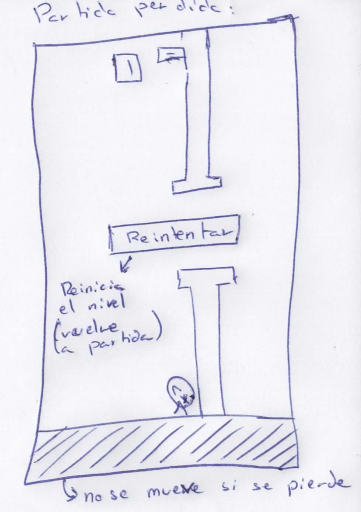 Partida perdida:
1
Reintentar
Reinicia
el nivel
(vuelve
a partida)
no se mueve si se pierde